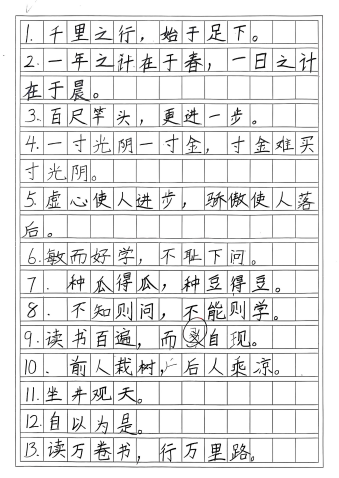 1. 千里之行，始于足下。
2. 一年之计在于春，一日之计
在于晨。
3. 百尺竿头，更进一步。
4. 一寸光阴一寸金，寸金难买
寸光阴。
5. 虚心使人进步，骄傲使人落
后。
6. 敏而好学，不耻下问。
7. 种瓜得瓜，种豆得豆。
8. 不知则问，不能则学。
9. 读书百遍，而自现。
10. 前人栽树，后人乘凉。
11. 坐井观天。
12. 自以为是。
13. 读万卷书，行万里路。